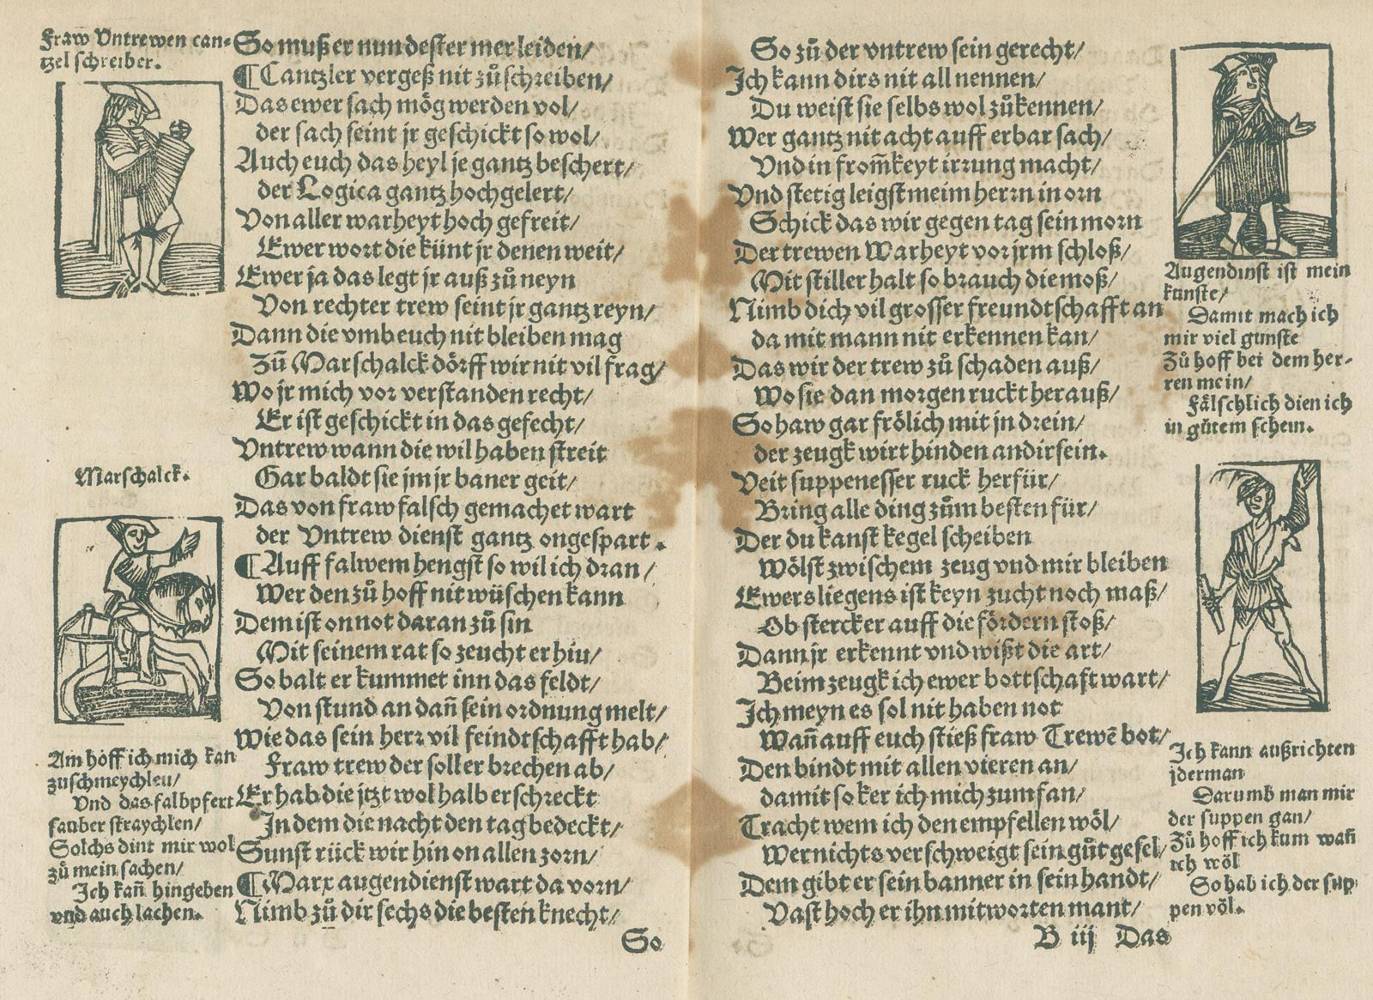 Fraw Vntrewen can-
tzel schreiber.
So muß er nun dester mer leiden/
¶Cantzler vergeß nit zů schreiben/
Das ewer sach mög werden vol/
der sach seint jr geschickt so wol/
Auch euch das heyl je gantz beschert/
der Logica gantz hochgelert/
Von aller warheyt hoch gefreit/
Ewer wort die künt jr denen weit/
Ewer ja das legt jr auß zů neyn
Von rechter trew seint jr gantz reyn/
Dann die vmb euch nit bleiben mag
Zů Marschalck dörff wir nit vil frag/
Wo jr mich vor verstanden recht/
Er ist geschickt in das gefecht/
Vntrew wann die wil haben streit
Gar baldt sie jm jr baner geit/
Das von fraw falsch gemachet wart
der Vntrew dienst gantz ongespart.
¶Auff falwem hengst so wil ich dran/
Wer den zů hoff nit wüschen kann
Dem ist on not daran zů sin
Mit seinem rat so zeucht er hin/
So balt er kummet inn das feldt/
Von stund an dañ sein ordnung melt/
Wie das sein herz vil feindtschafft hab/
Fraw trew der soll er brechen ab/
Er hab die jtzt wol halb erschreckt
In dem die nacht den tag bedeckt/
Sunst rück wir hin on allen zorn/
¶Marx augendienst wart da vorn/
Nimb zů dir sechs die besten knecht/
So
Marschalck.
Am hoff ich mich kan
zuschmeychlen/
Vnd das falb pfert
sauber straychlen/
Solchs dint mir wol
zů mein sachen/
Ich kañ hingeben
vnd auch lachen.
So zů der vntrew sein gerecht/
Ich kann dirs nit all nennen/
Du weist sie selbs wol zů kennen/
Wer gantz nit acht auff erbar sach/
Vnd in from̃keyt irrung macht/
Vnd stetig leigst meim herrn in orn
Schick das wir gegen tag sein morn
Der trewen Warheyt vor jrm schloß/
Mit stiller halt so brauch die moß/
Nimb dich vil grosser freundtschafft an
da mit mann nit erkennen kan/
Das wir der trew zů schaden auß/
Wo sie dan morgen ruckt herauß/
So haw gar frölich mit jn drein/
der zeugk wirt hinden an dir sein.
Veit suppenesser ruck herfür/
Bring alle ding zům besten für/
Der du kanst kegel scheiben
Wölst zwischem zeug vnd mir bleiben
Ewers liegens ist keyn zucht noch maß/
Ob stercker auff die fördern stoß/
Dann jr erkennt vnd wißt die art/
Beim zeugk ich ewer bottschaft wart/
Ich meyn es sol nit haben not
Wañ auff euch stieß fraw Trewẽ bot/
Den bindt mit allen vieren an/
damit so ker ich mich zum fan/
Tracht wem ich den empfellen wöl/
Wer nichts verschweigt sein gůt gesel/
Dem gibt er sein banner in sein handt/
Vast hoch er ihn mit worten mant/
B iij Das
Augendinst ist mein
kunste/
Damit mach ich
mir viel gunste
Zů hoff bei dem her-
ren mein/
Fälschlich dien ich
in gůtem schein.
Ich kann außrichten
jderman
Darumb man mir
der suppen gan/
Zů hoff ich kum wañ
ich wöl
So hab ich der sup-
pen völ.